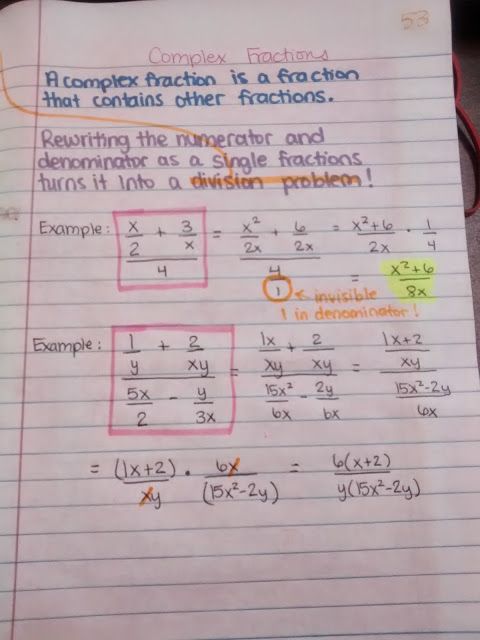 53
Complex Fractions
A complex fraction is a fraction
that contains other fractions.
Rewriting the numerator and
denominator as a single fractions
turns it into a division problem!
Example: (x/2 + 3/x)/4 = (x²/2x + 6/2x)/(4/1) = (x²+6)/2x · 1/4
= (x²+6)/8x
← invisible
1 in denominator!
Example: (1/y + 2/xy)/(5x/2 - y/3x) = (1x/xy + 2/xy)/(15x²/6x - 2y/6x) = ((1x+2)/xy)/((15x²-2y)/6x)
= (1x+2)/xy · 6x/(15x²-2y) = 6(x+2)/y(15x²-2y)